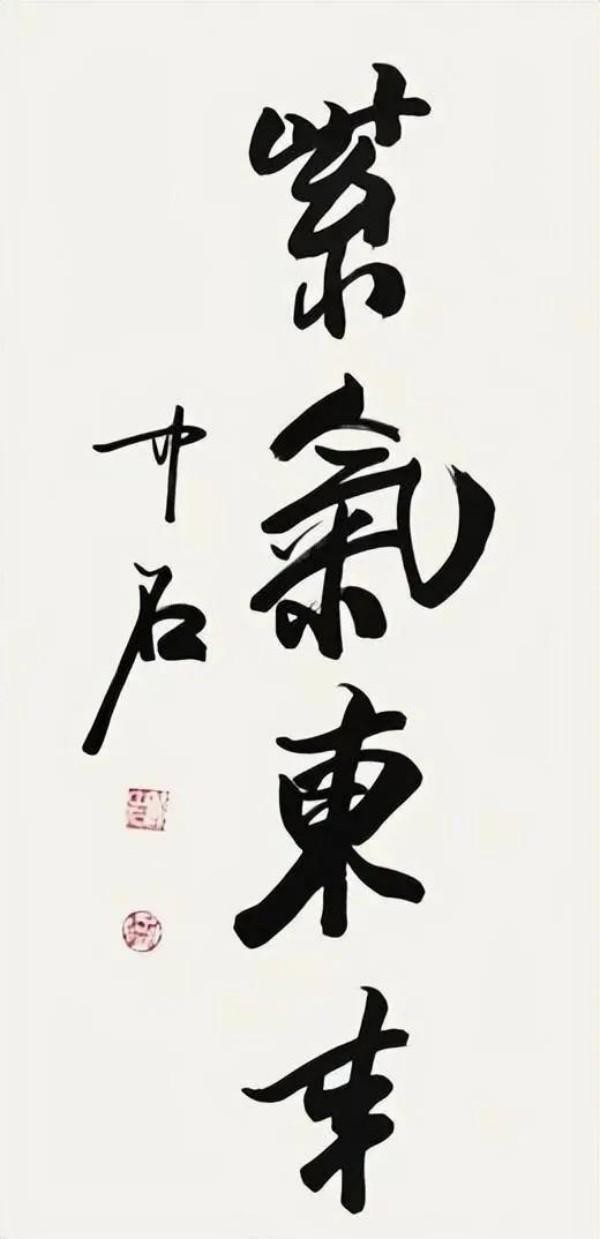 紫氣東来
中石